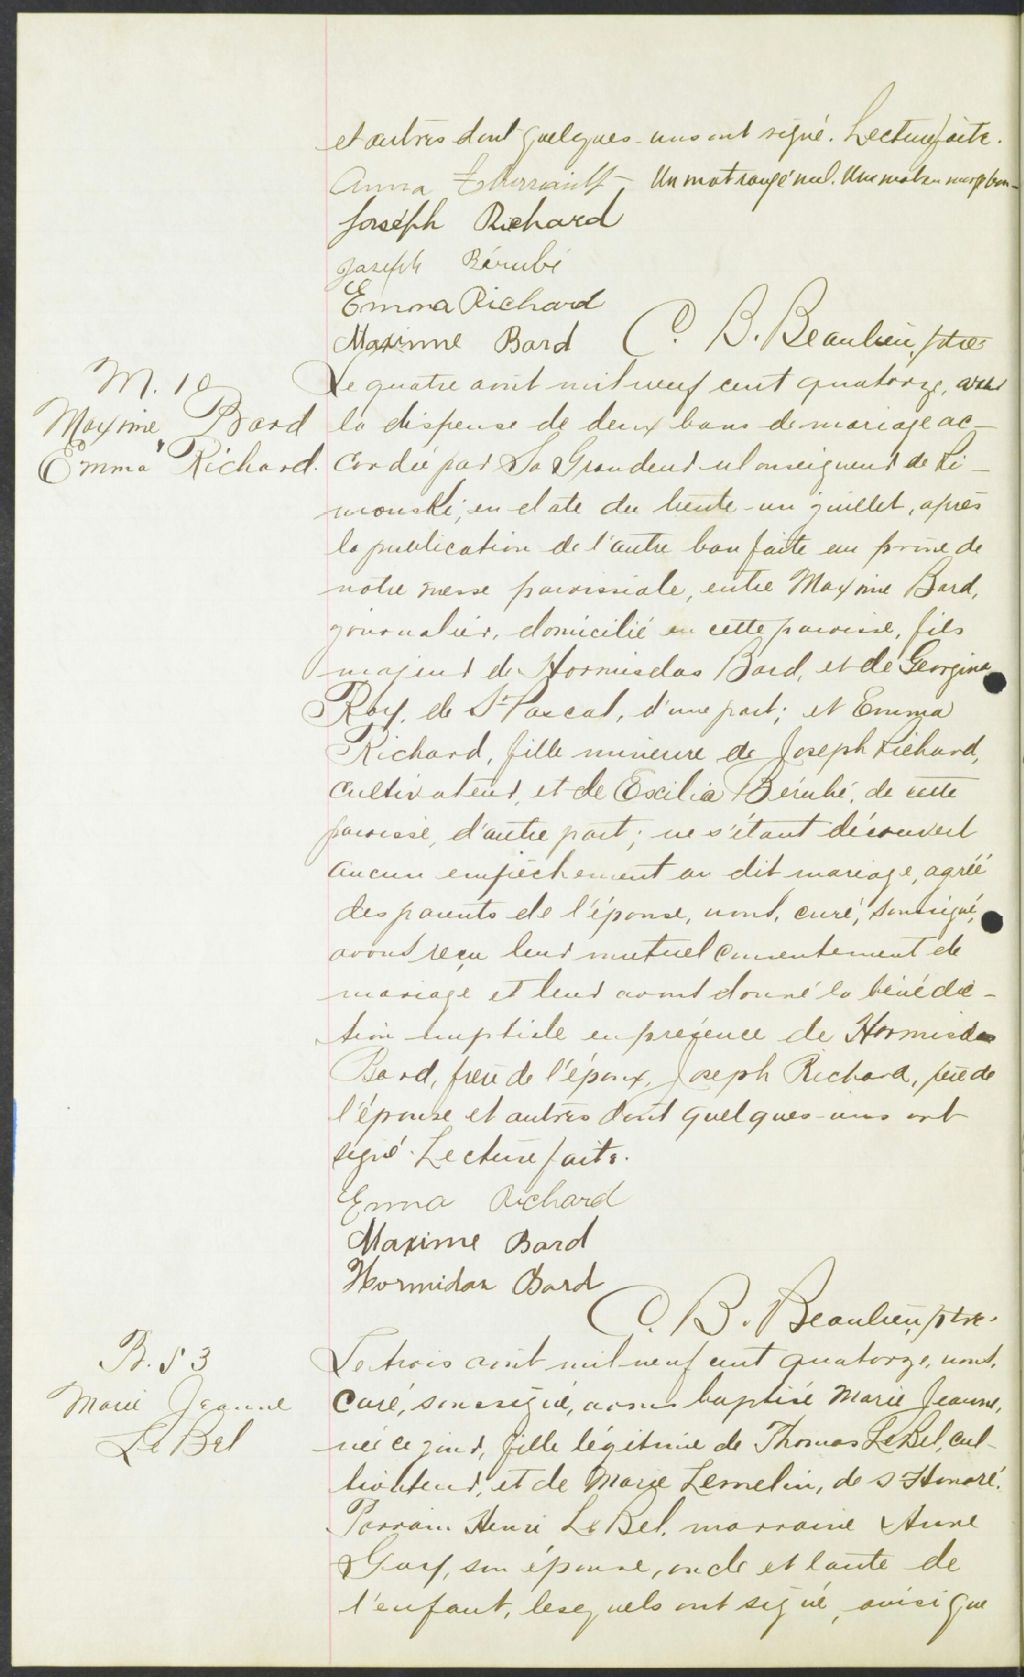 et autres dont quelques-uns ont signé. Lecture faite.
Anna Un mot rayé nul. Un mot en marge bon
Joseph Richard
Joseph Bérubé
Emma Richard
Maxime Bard C. B. Beaulieu, ptre
M. 10
Maxime Bard
Emma Richard.
Le quatre août mil neuf cent quatorze, avec
la dispense de deux bans de mariage ac-
cordée par Sa Grandeur Monseigneur de Ri-
mouski, en date du trente-un juillet, après
la publication de l'autre ban faite au prône de
notre messe paroissiale, entre Maxime Bard,
journalier, domicilié en cette paroisse, fils
majeur de Hormisdas Bard, et de Georgina
Roy, de St Pascal, d'une part; et Emma
Richard, fille mineure de Joseph Richard,
cultivateur, et de Exilia Bérubé, de cette
paroisse, d'autre part; ne s'étant découvert
aucun empêchement au dit mariage, agréé
des parents de l'épouse, nous, curé, soussigné,
avons reçu leur mutuel consentement de
mariage et leur avons donné la bénédic-
tion nuptiale en présence de Hormisdas
Bard, frère de l'époux, Joseph Richard, père de
l'épouse et autres dont quelques-uns ont
signé. Lecture faite.
Emma Richard
Maxime Bard
Hormidas Bard
C. B. Beaulieu, ptre.
B. 53
Marie Jeanne
LeBel
Le trois août mil neuf cent quatorze, nous,
curé, soussigné, avons baptisé Marie Jeanne,
née ce jour, fille légitime de Thomas LeBel, cul-
tivateur, et de Marie Lemelin, de St Honoré.
Parrain Henri LeBel, marraine Anne
Guy, son épouse, oncle et tante de
l'enfant, lesquels ont signé, ainsi que